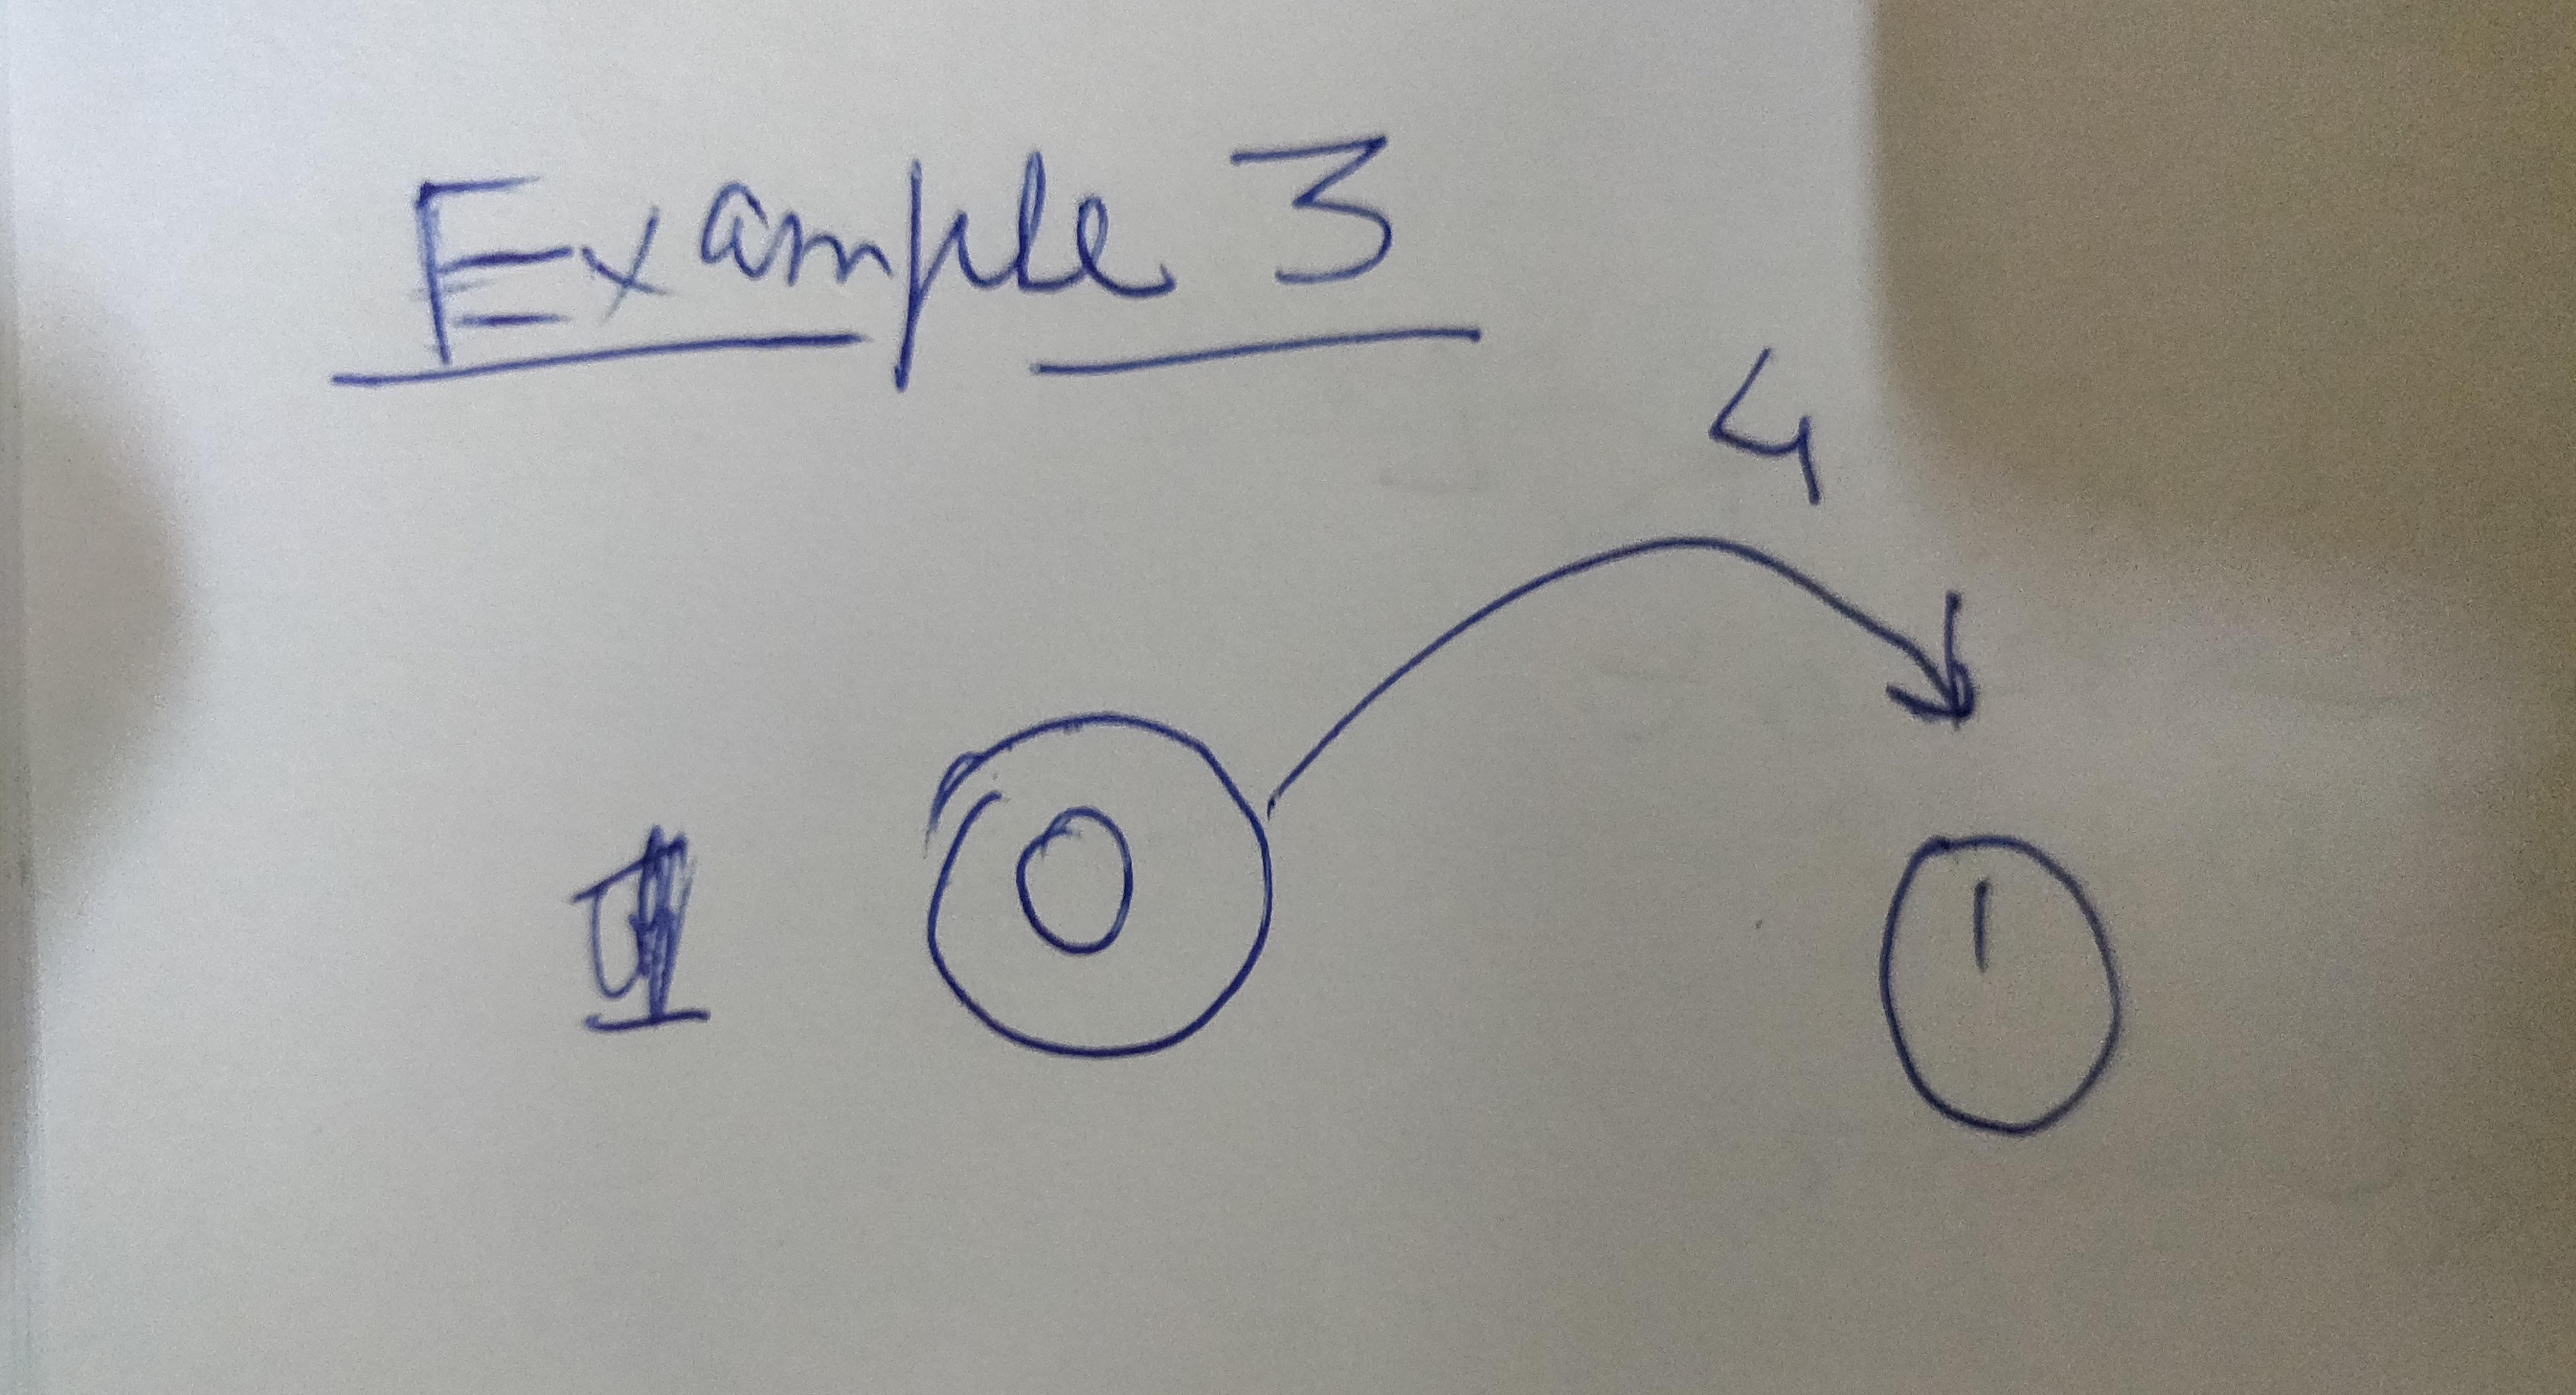 Example 3
4
0
1